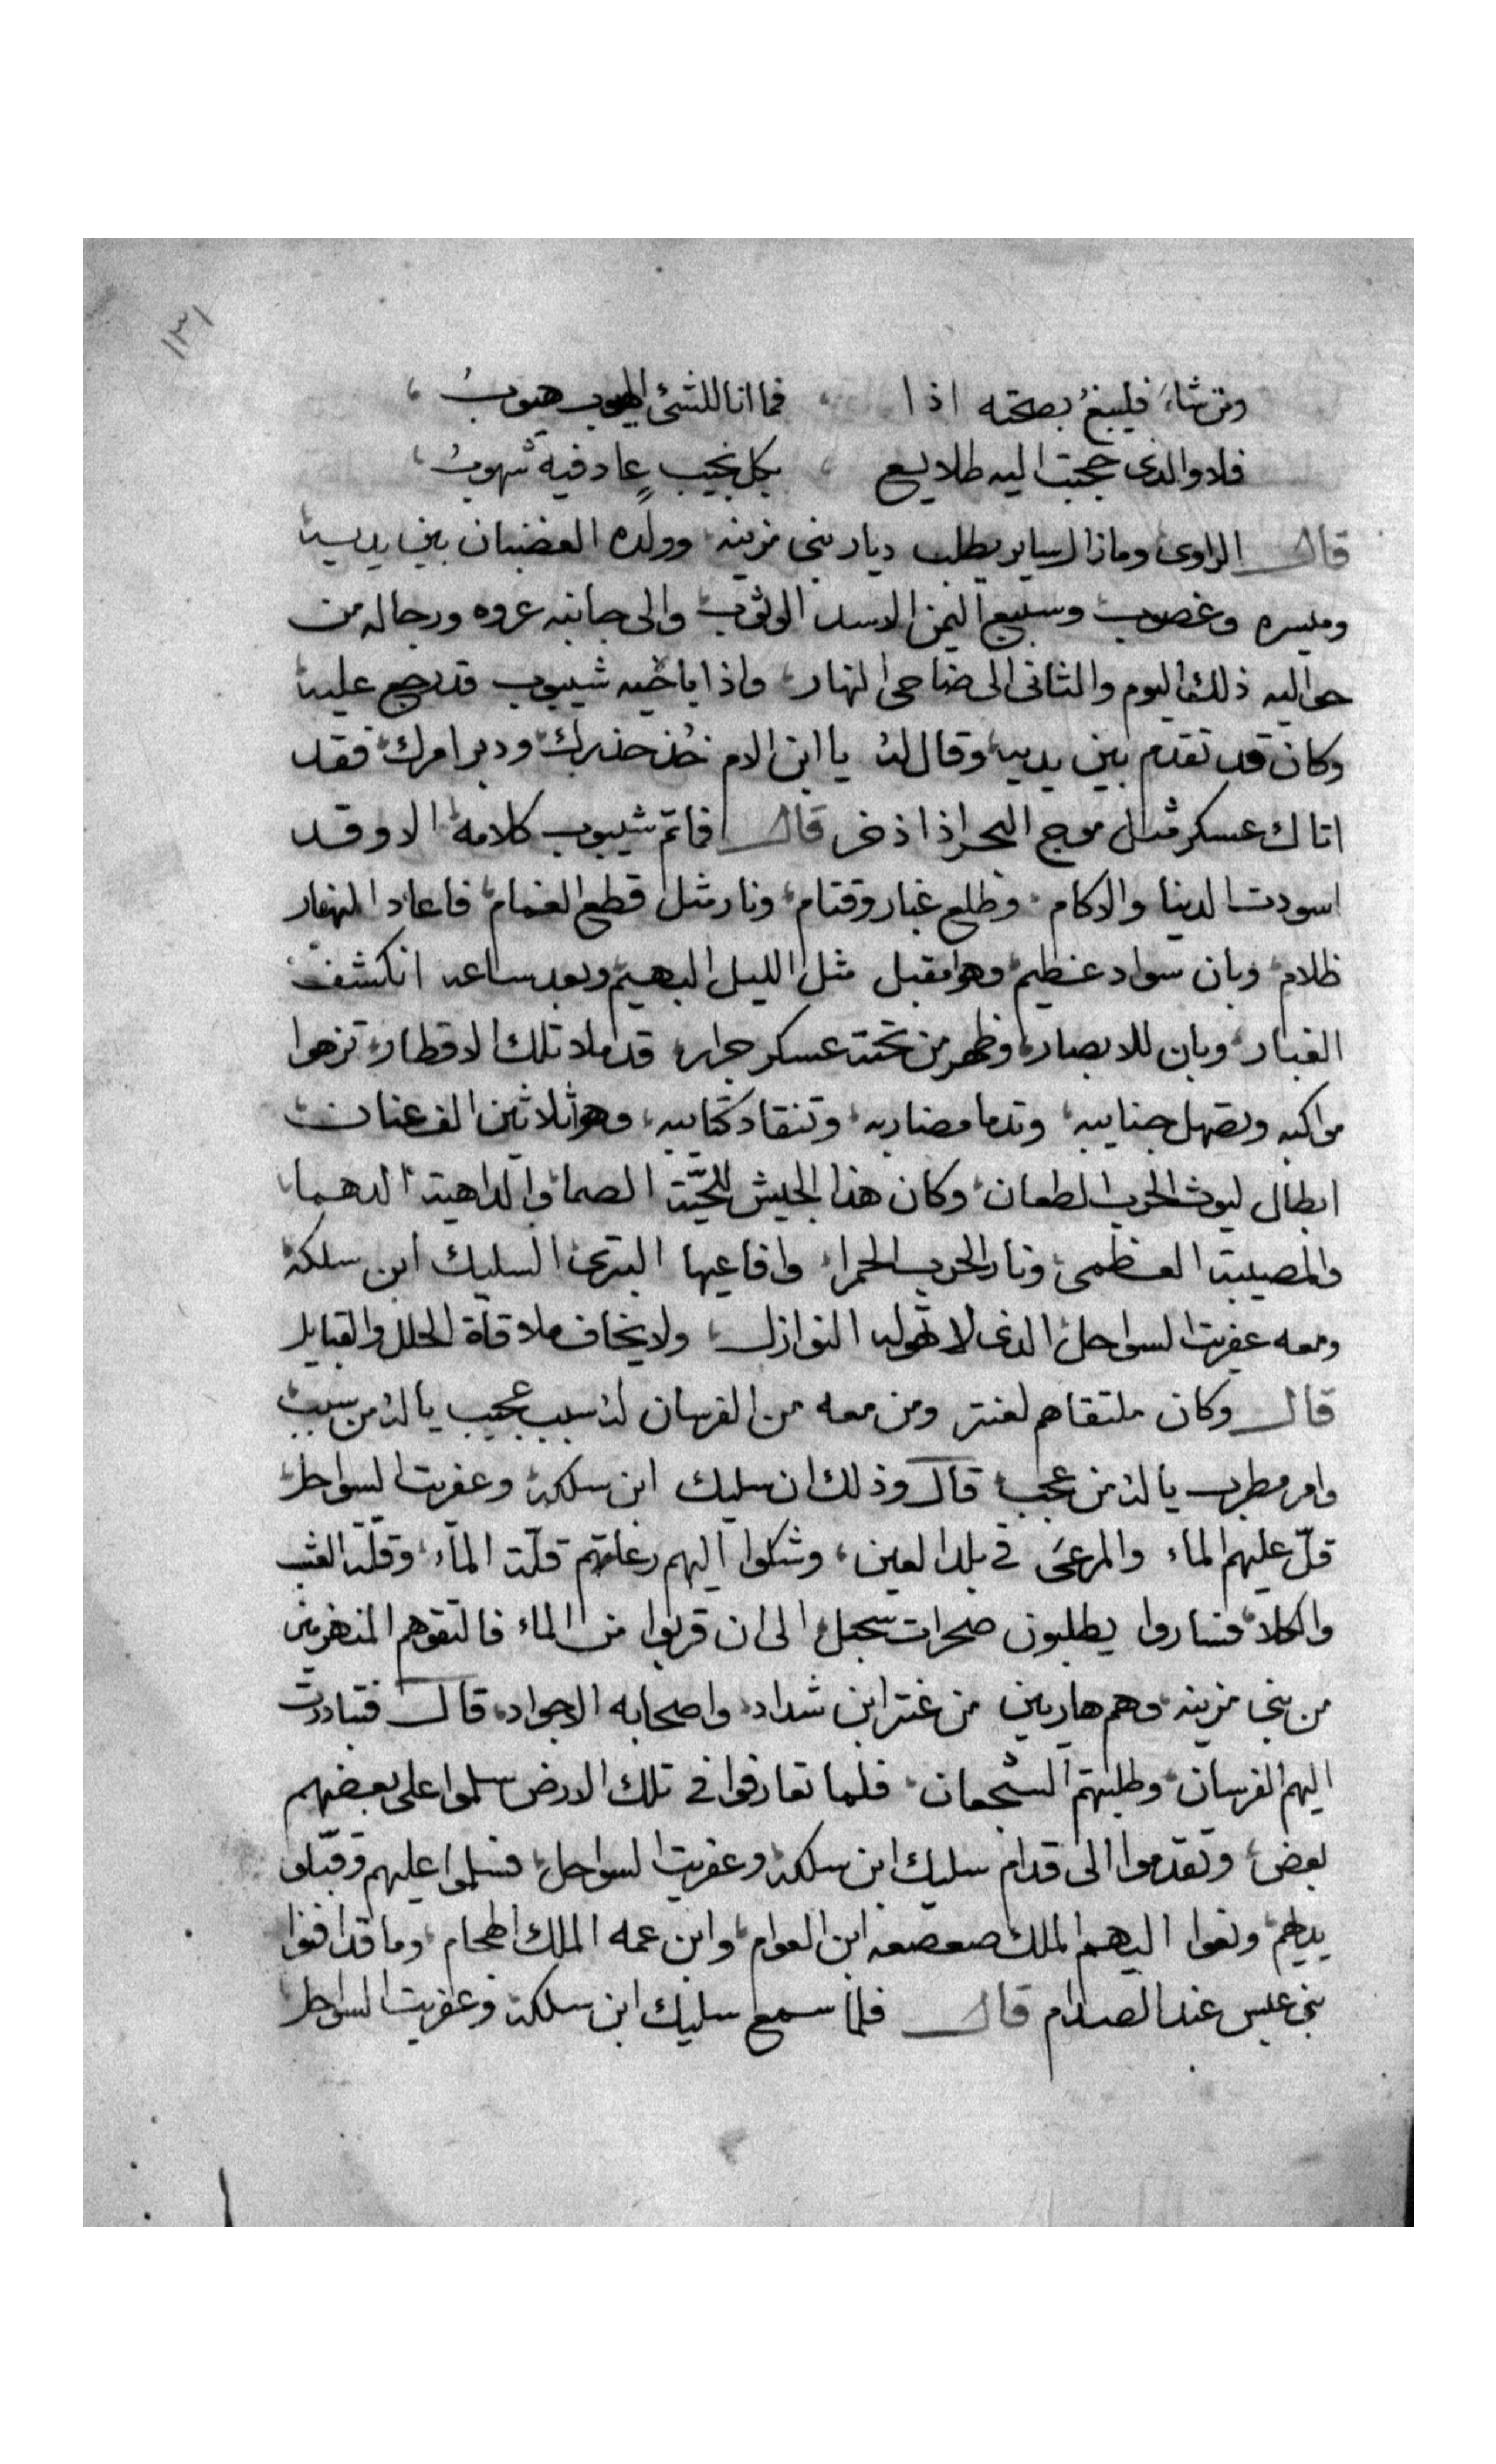 ١٣١
ومن شاء فليبغ بصحته اذا ، فما انا للشئ المهيوب هيوب ،
فلا والذى حججت اليه طلايع ، بكل نجيب عاد فيه شهوب ،
قال الراوى ومازال ساير يطلب ديار بنى مزينه وولده الغضبان بين يديه
وميسره وغصوب وسبيع اليمن الاسد الوثوب والى جانبه عروه ورجاله من
حواليه ذلك اليوم والثانى الى ضاحى النهار واذا باخيه شيبوب قد رجع عليه
وكان قد تقدم بين يديه وقال له يا ابن الام خذ حذرك ودبر امرك فقد
اتاك عسكر مثل موج البحر اذا ذخر قال فما تم شيبوب كلامه الا وقد
اسودت الدينا والاكام وطلع غبار وقتام ونار مثل قطع الغمام فاعاد النهار
ظلام وبان سواد عظيم وهو مقبل مثل الليل البهيم وبعد ساعه انكشف
الغبار وبان للابصار وظهر من تحته عسكر جرار قد ملا تلك الاقطار تزهوا
مواكبه وتصهل جنايبه وتدما مضاربه وتنقاد كتايبه وهو ثلاثين الف عنان
ابطال ليوث الحرب الطعان وكان هذا الجيش للحيّة الصما والداهية الدهما
والمصيبة العظمى ونار الحرب الحمرا وافاعيها السليك ابن سلكة
ومعه عفريت السواحل الذى لا تهوله النوازل ولا يخاف ملاقاة الحلل والقبايل
قال وكان ملتقاهم لعنتر ومن معه من الفرسان له سبب عجيب يا له من سبب
وامر مطرب يا له من عجب قال وذلك ان سليك ابن سلكة وعفريت السواحل
قلّ عليهم الماء والمرعى فى بلد العين وشكوا اليهم رعاتهم قلّة الماء وقلّة العشب
والكلا فساروا يطلبون صحرات سحبل الى ان قربوا من الماء فالتقوهم المنهزمين
من بنى مزينه وهم هاربين من عنتر ابن شداد واصحابه الاجواد قال فتبادرت
اليهم الفرسان وطلبتهم الشجعان فلما تعارفوا فى تلك الارض سلموا على بعضهم
بعض وتقدموا الى قدام سليك ابن سلكة وعفريت السواحل فسلموا عليهم وقبّلو
يديهم ونعوا اليهم الملك صعصعه ابن العوام وابن عمه الملك وما قد افنوا
بنى عبس عند الصدام قال فلما سمع سليك ابن سلكة وعفريت السواحل